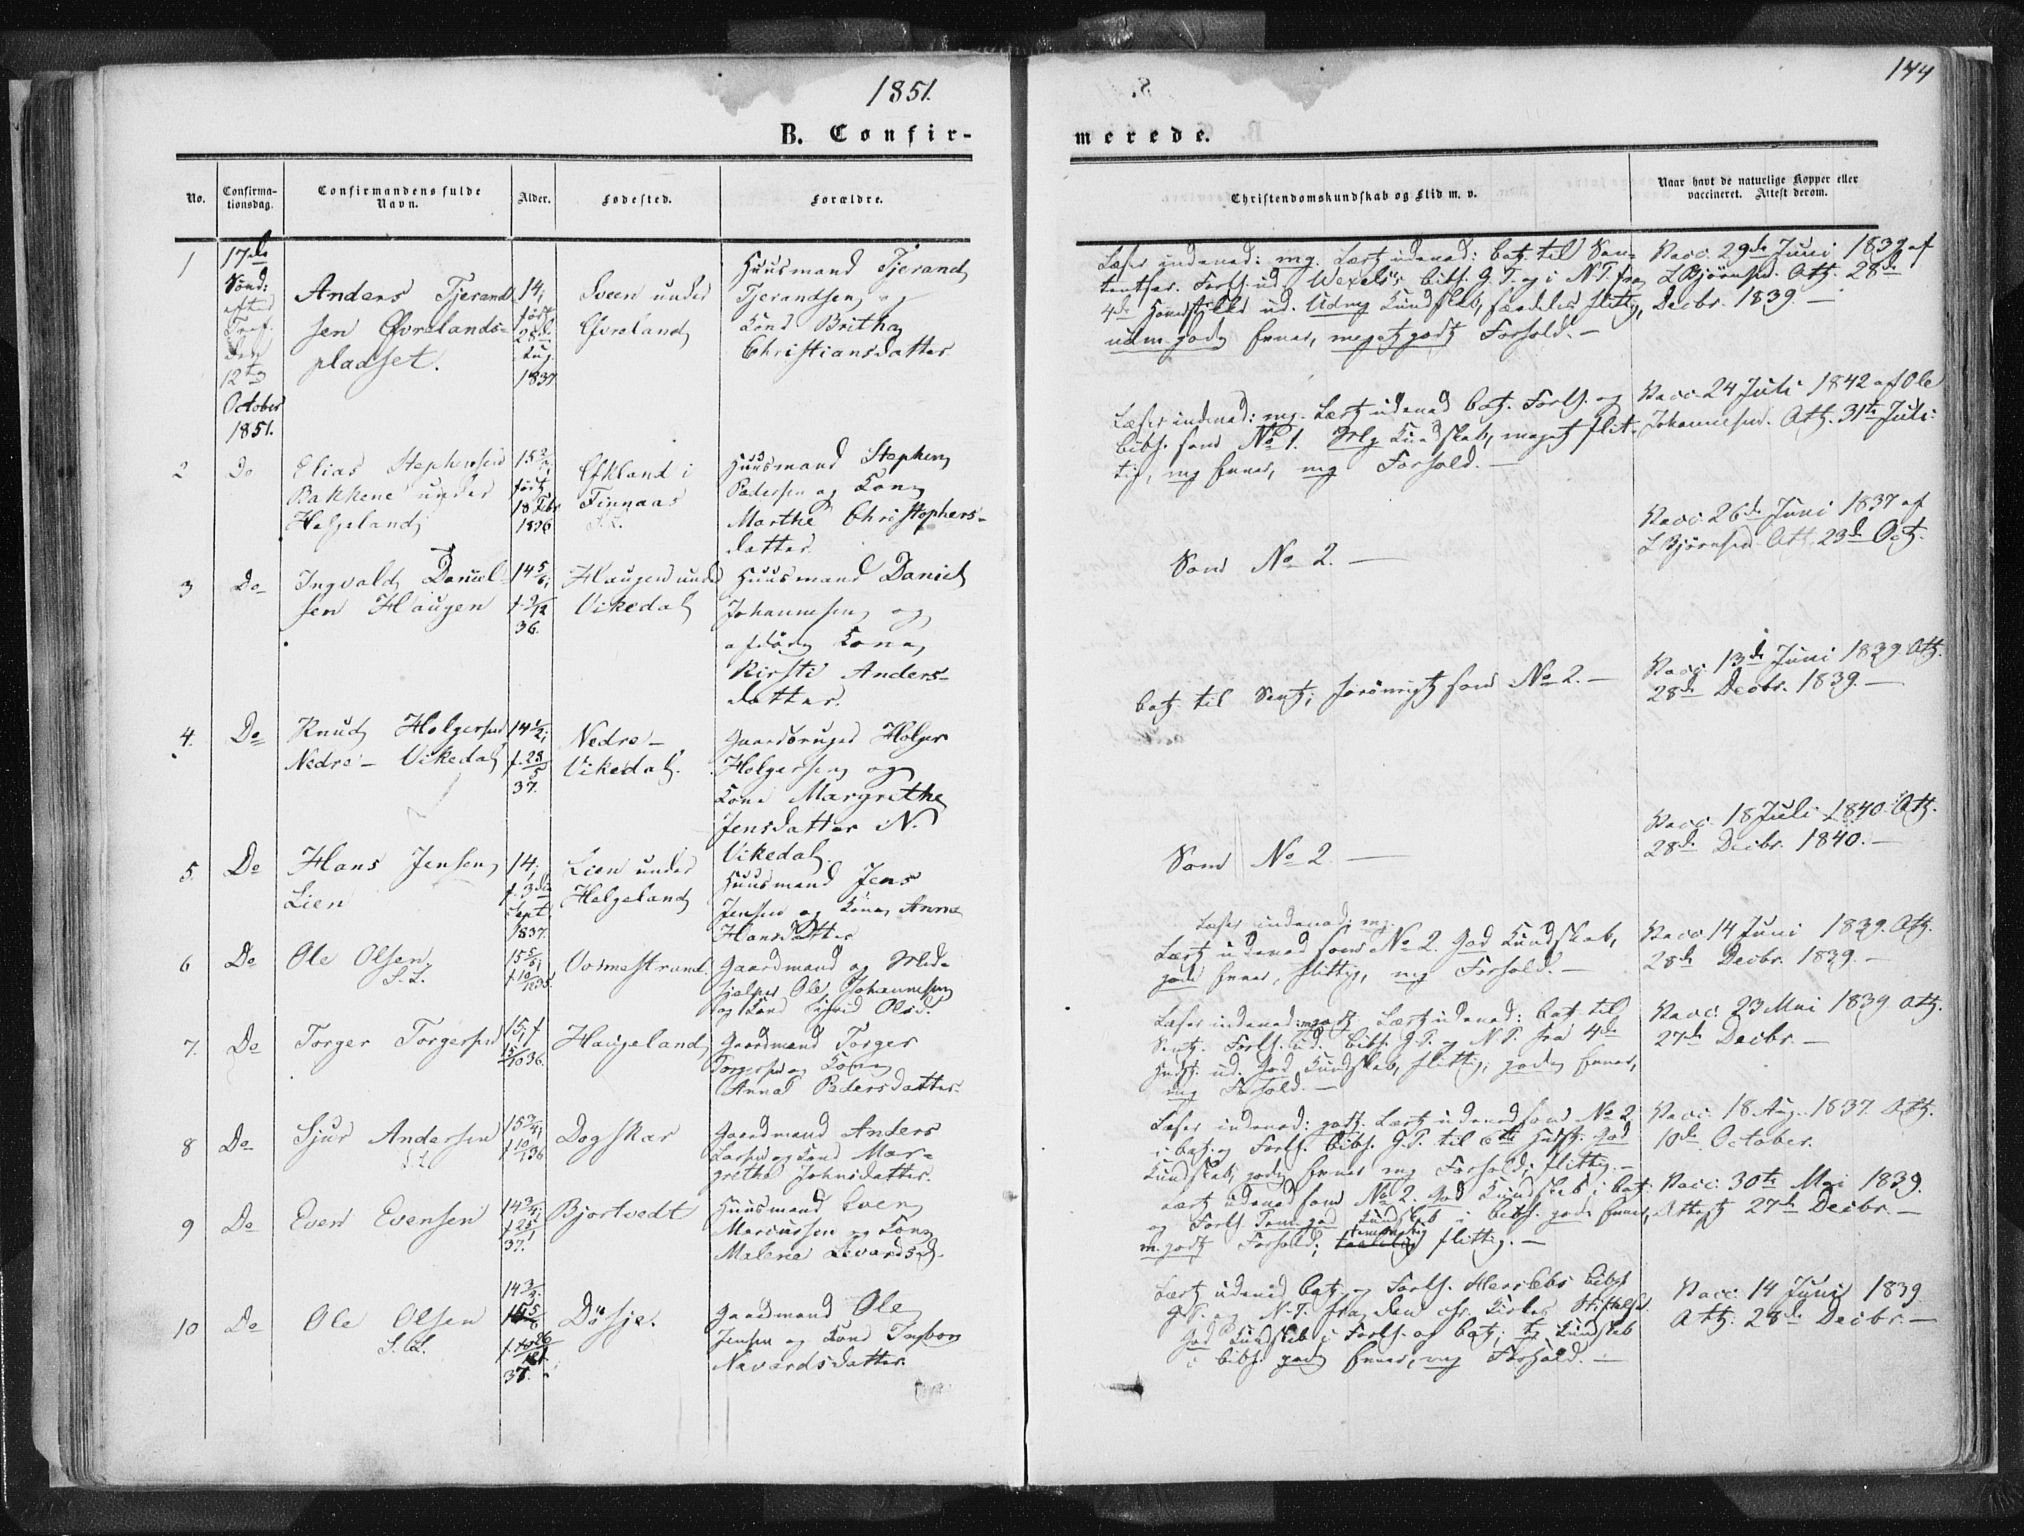 1851.
144
B. Confir-
merede.
No.
Confirma-
tionsdag.
Confirmandens fulde
Navn.
Alder.
Fødested.
Forældre.
Christendomskundskab og Flid m. v.
Naar havt de naturlige Kopper eller
vaccineret. Attest derom.
1
17de
Sønd:
efter
Tref.
den
12te
October
1851.
Anders Tjerand-
sen Øvrelands-
pladset.
14,
født
28de
Aug.
1837
Sveen under
Øvreland
Huusmand Tjerand
Tjerandsen og
Kone Britha
Christiansdatter
Læser indenad: mg. Lært udenad: Cat. til Sen-
Forkl. ud. Wexels's bibh. G. T. og i N. T. fra
4de ud. Udmg Kundskab, særdeles flittig,
udm. gode Evner, meget godt Forhold. —
Vacc. 29de Juni 1839 af
L Bjørnsen. Att. 28de
Decbr. 1839. —
2
Do
Elias Stephensen
Bakkene under
Helgeland
født
18 Febr
1836
i
Finnaas
Huusmand Stephen
Pedersen og Kone
Marthe Christophers-
datter.
Læser indenad: mg. Lært udenad Cat. Forkl. og
bibh. som No 1. Mg Kundskab, meget flit-
tig, mg Evner, mg Forhold. —
Vacc. 24 Juli 1842 af Ole
Johannesen. Att. 31te Juli.
3
Do
Ingvald Daniel-
sen Haugen
14 5/6,
f. 9/12
36.
Haugen under
Vikedal
Huusmand Daniel
Johannesen og
afdøde Kone
Kirsti Anders-
datter.
Som No 2. —
Vacc. 26de Juni 1837 af
L Bjørnsen. Att. 23de Oct.
4.
Do
Knud Holgersen
Nedre- Vikedal
14 1/2,
f. 23/5
37.
Nedre-
Vikedal.
Gaardbruger Holger
Holgersen og
Kone Margrethe
Jensdatter N.
Vikedal.
Cat. til Sent; forøvrigt som No 2. —
Vacc. 13de Juni 1839. Att.
28de Decbr. 1839. —
5.
Do
Hans Jensen
Lien
14,
f. 3de
Sept.
1837.
Lien under
Helgeland
Huusmand Jens
Jensen og Kone Anne
Hansdatter
Som No 2. —
Vacc. 18 Juli 1840. Att.
28de Decbr. 1840. —
6
Do
Ole Olsen
S. L.
15 5/6,
Vormestrand
Gaardmand og Med-
hjelper Ole Johannesen
og Kone Sigrid Olsd.
Læser indenad: mg.
Lært udenad som No 2. God Kundskab,
gode Evner, flittig, mg Forhold. —
Vacc 14 Juni 1839. Att.
28de Decbr. 1839. —
7.
Do
Torger Torgersen
15, f
15/10 36.
Haugeland
Gaardmand Torger
Torgersen og Kone
Anna Pedersdatter.
Læser indenad: mgodt. Lært udenad: Cat. til
Sent. Forkl. ud. bibh. G. T. og N. T. fra 4de
ud. God Kundskab, flittig, gode Evner,
mg Forhold. —
Vacc. 23 Mai 1839 Att.
27de Decbr. —
8
Do
Sjur Andersen
S. L.
15 3/4,
Dagskar
Gaardmand Anders
Larsen og Kone Mar-
grethe Johnsdatter.
Læser indenad: godt. Lært udenad som No 2
i Cat. og Forkl. bibh. G. T. til 6te God
Kundskab, gode Evner, mg Forhold; flittig. —
Vacc. 18 Aug. 1837. Att.
10de October.
9
Do
Even Evensen
14 3/4,
37.
Bjortvedt
Huusmand Even
Marcussen og Kone
Malene Levardsd.
Lært udenad som No 2. God Kundskab i Cat.
og Forkl. Tem. god Kundskab i bibh. gode Evner,
m. godt Forhold; temmelig flittig. —
Vacc. 30te Mai 1839.
Attest 27de Decbr. —
10
Do
Ole Olsen
S. L.
37.
Døsje.
Gaardmand Ole
Jensen og Kone Ingbor
Navardsdatter.
Lært udenad Cat. og Forkl. Herslebs bibh
G. T. og N. T. fra den chr. Kirkes Stiftelse.
God Kundskab i Forkl. og Cat; tg. Kundskab
i bibh. gode Evner, mg Forhold. —
Vacc. 14 Juni 1839
Att. 28de Decbr. —